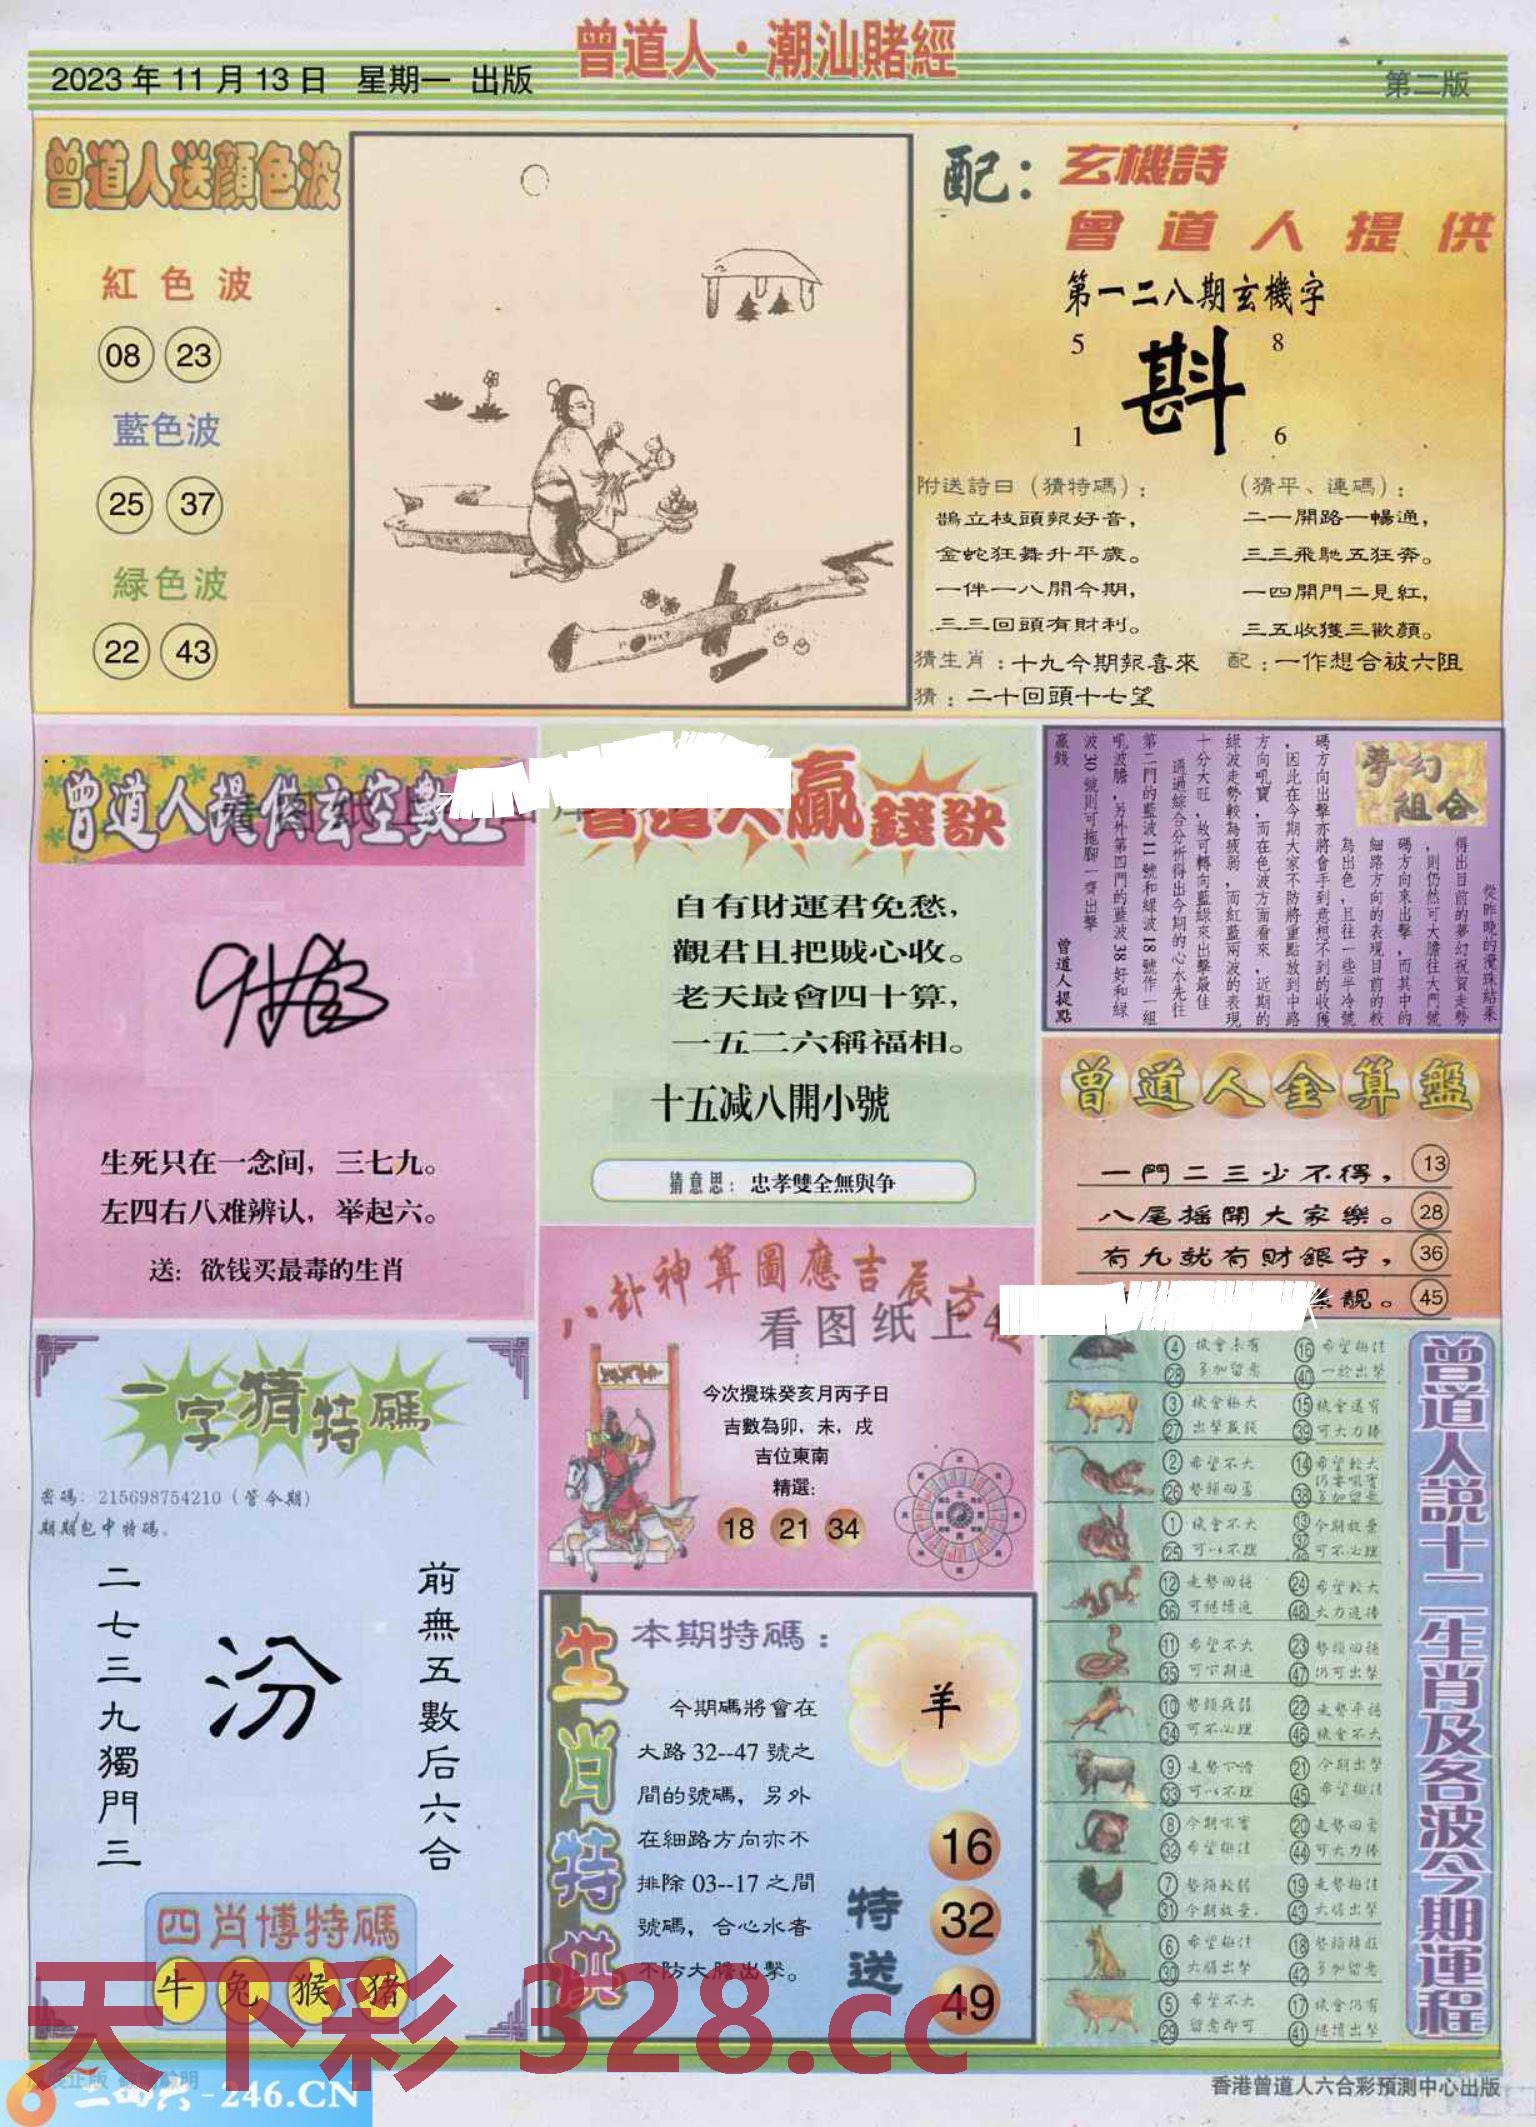 曾道人·潮汕賭經
2023年11月13日 星期一 出版
第二版
曾道人送顏色波
紅色波
08 23
藍色波
25 37
緑色波
22 43
配：玄機詩
曾道人提供
第一二八期玄機字
5 8
斟
1 6
附送詩曰（猜特碼）：
鵲立枝頭報好音，
金蛇狂舞升平歲。
一伴一八開今期，
三三回頭有財利。
（猜平、連碼）：
二一開路一暢通，
三三飛馳五狂奔。
一四開門二見紅，
三五收獲三歡顏。
猜生肖：十九今期報喜來
配：一作想合被六阻
猜：二十回頭十七望
曾道人提供玄空數
生死只在一念间，三七九。
左四右八难辨认，举起六。
送：欲钱买最毒的生肖
曾道人贏錢訣
自有財運君免愁，
觀君且把賊心收。
老天最會四十算，
一五二六稱福相。
十五减八開小號
猜意思：忠孝雙全無與争
夢幻組合
從昨晚的攪珠結果
得出目前的夢幻祝賀走勢
，則仍然可大膽往大門號
碼方向來出擊，而其中的
細路方向的表現目前的較
為出色，且往一些半冷號
碼方向出擊亦將會手到意想不到的收獲
，因此在今期大家不防將重點放到中路
方向吼寶，而在色波方面看來，近期的
綠波走勢較為疲弱，而紅藍兩波的表現
十分大旺，故可轉向藍綠來出擊最佳
通過綜合分析得出今期的心水先往
第二門的藍波11號和綠波18號作一組
吼波膽，另外第四門的藍波38好和綠
波30號則可拖腳一齊出擊
贏錢
曾道人提點
曾道人金算盤
一門二三少不得， 13
八尾摇開大家樂。 28
有九就有財銀守， 36
靚。 45
八卦神算圖應吉辰方
看图纸上
今次攪珠癸亥月丙子日
吉數為卯，未，戌
吉位東南
精選：
18 21 34
一字猜特碼
密碼：215698754210（管今期）
期期包中特碼。
前無五數后六合
汾
二七三九獨門三
四肖博特碼
牛 兔 猴 猪
生肖特供
本期特碼：
羊
今期碼將會在
大路32--47號之
間的號碼，另外
在細路方向亦不
排除03--17之間
號碼，合心水者
不防大膽出擊。
特送
16
32
49
曾道人説十二生肖及各波今期運程
4 28 機會未有 多加留意 16 40 希望極佳 一於出擊
3 27 機會極大 出擊贏錢 15 39 機會還有 可大力捧
2 26 希望不大 勢頭回勇 14 38 希望較大 仍要吼實 多加留意
1 25 機會不大 可以不理 13 37 49 今期放量 可不必理
12 36 走勢回穩 可繼續追 24 48 希望較大 大力追捧
11 35 希望不大 可下期追 23 47 勢頭回穩 仍可出擊
10 34 勢頭疲弱 可不必理 22 46 走勢平穩 機會不大
9 33 走勢下滑 可以不理 21 45 今期出擊 希望極佳
8 32 今期吼實 希望極佳 20 44 走勢回勇 可大力捧
7 31 勢頭較弱 今期放量. 19 43 走勢極佳 大膽出擊
6 30 希望極佳 大膽出擊 18 42 勢頭轉旺 多加留意
5 29 希望不大 留意即可 17 41 機會仍有 繼續出擊
天下彩 328.cc
二四六-246.CN
香港曾道人六合彩預測中心出版